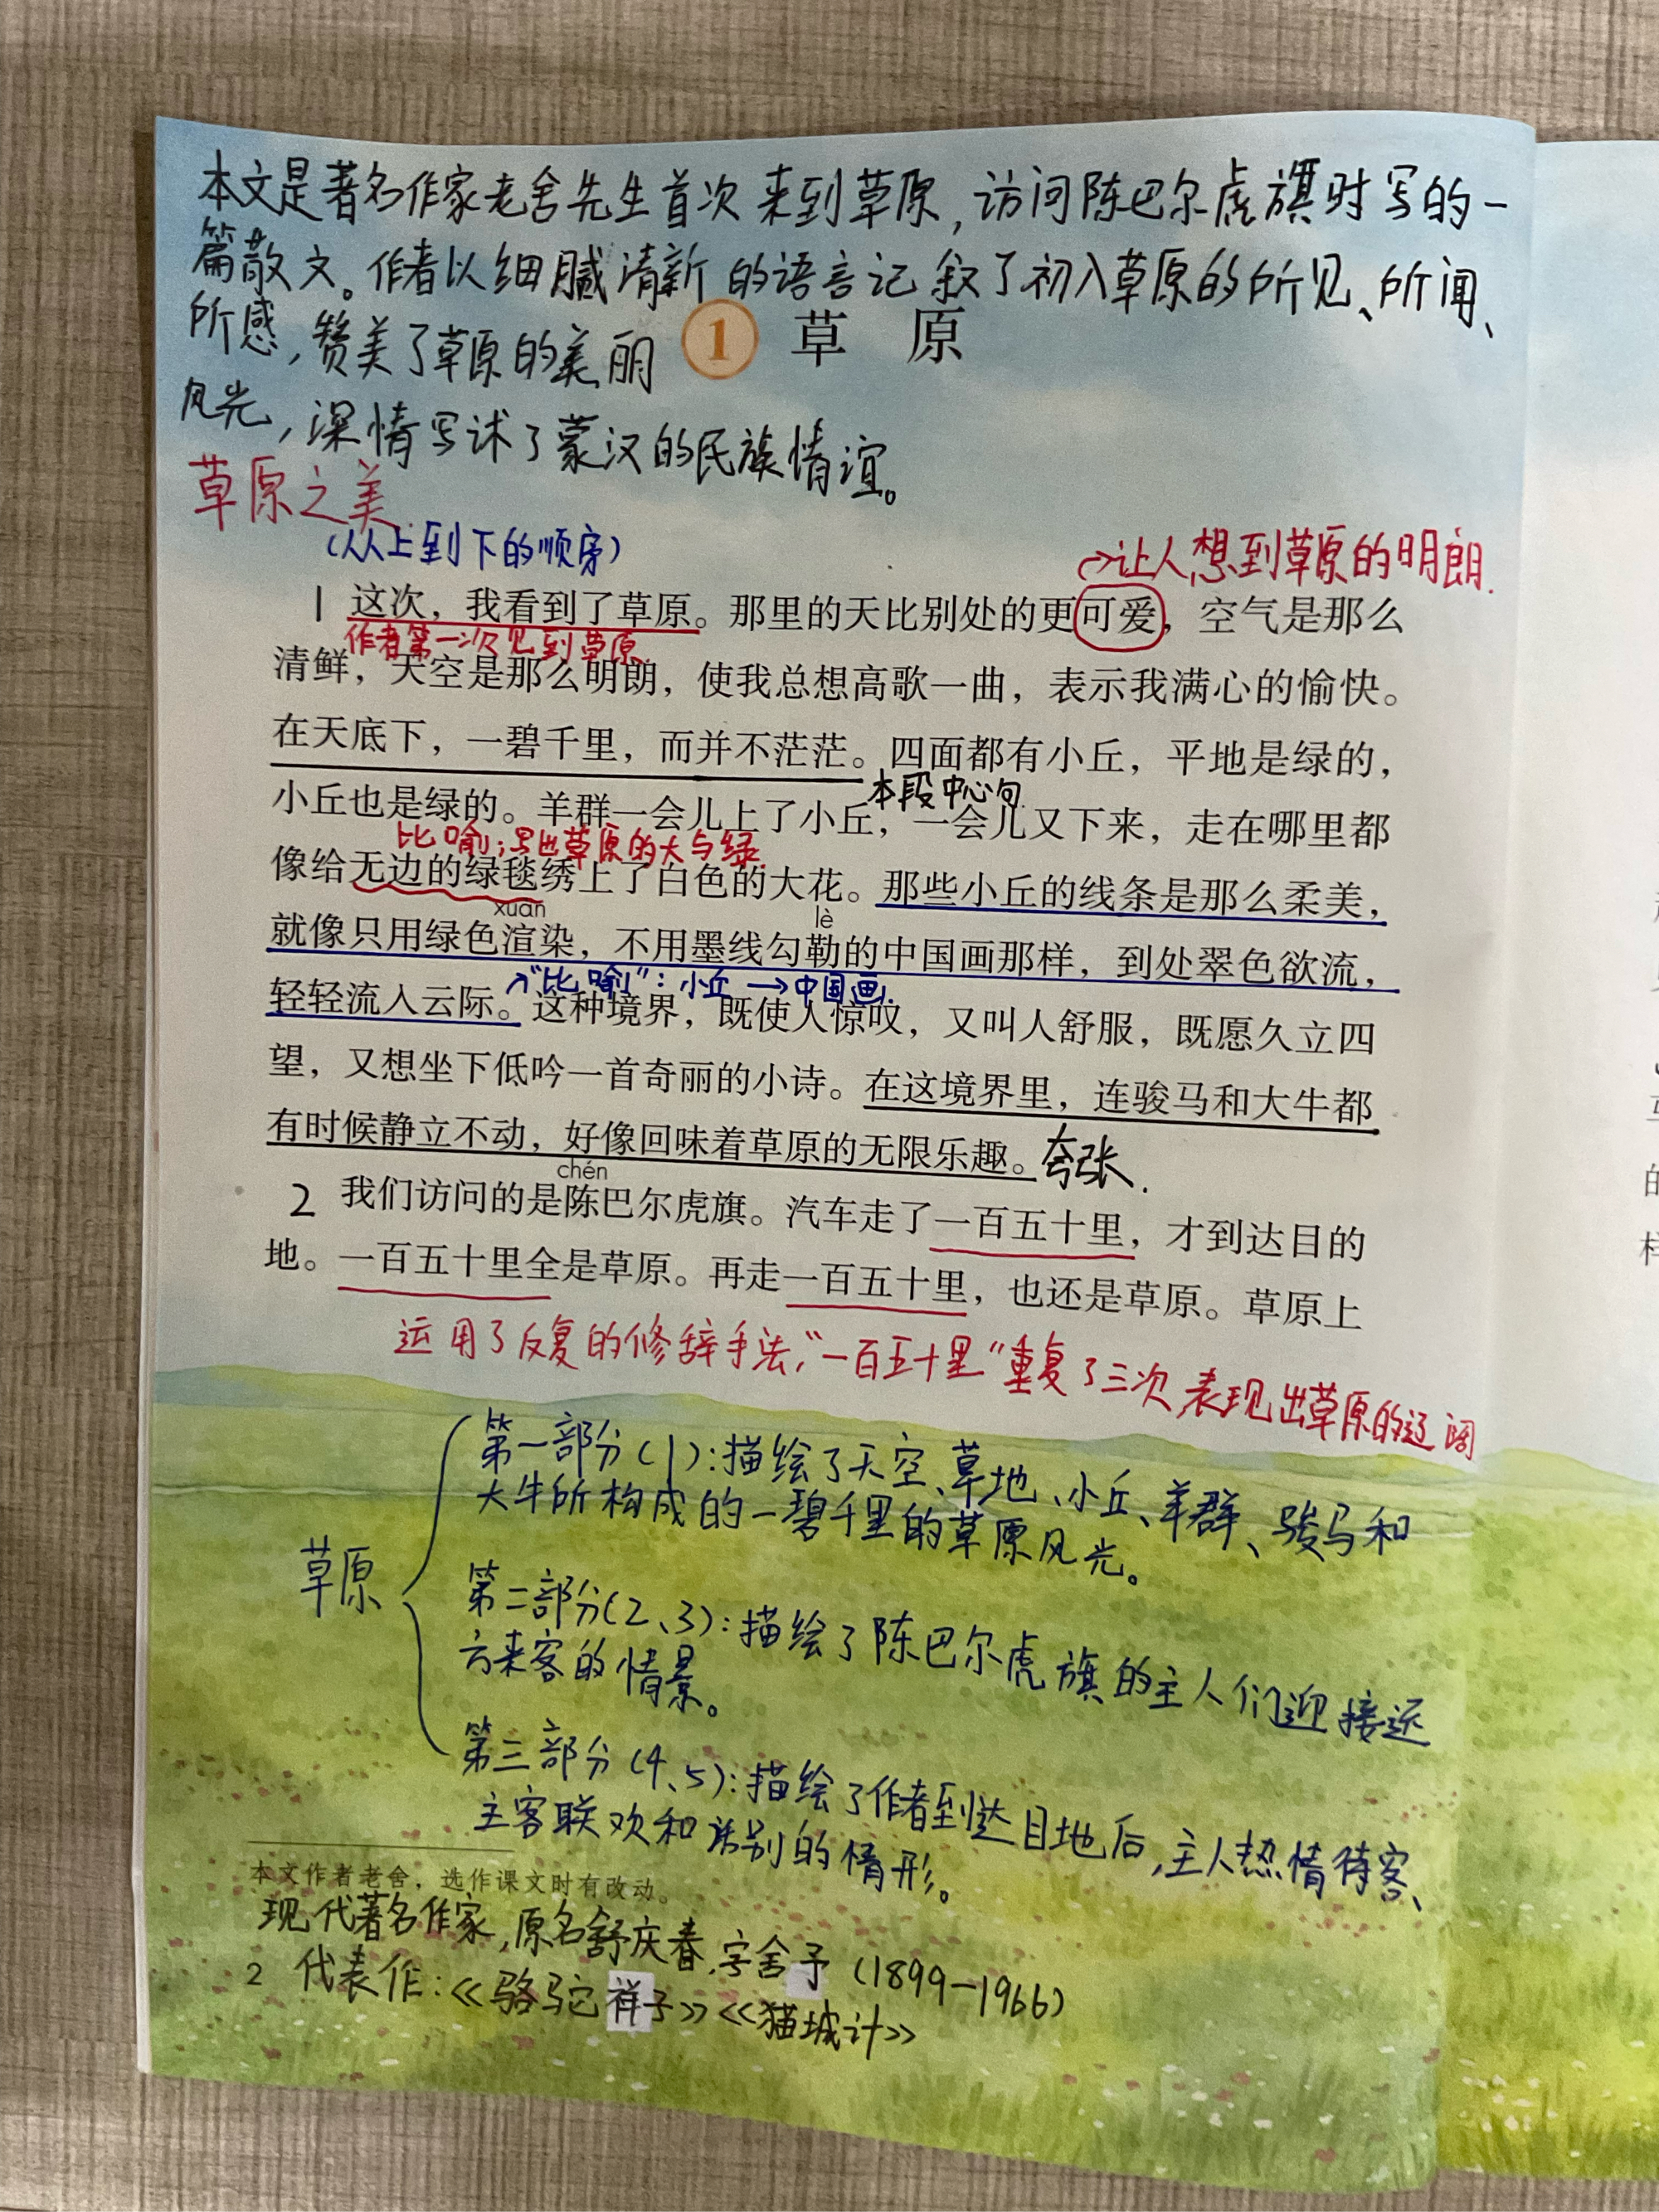 本文是著名作家老舍先生首次来到草原，访问陈巴尔虎旗时写的一
篇散文。作者以细腻清新的语言记叙了初入草原的所见、所闻、
所感，赞美了草原的美丽
1 草 原
风光，深情写述了蒙汉的民族情谊。
草原之美
（从上到下的顺序）
→让人想到草原的明朗.
1 这次，我看到了草原。那里的天比别处的更可爱，空气是那么
作者第一次见到草原.
清鲜，天空是那么明朗，使我总想高歌一曲，表示我满心的愉快。
在天底下，一碧千里，而并不茫茫。四面都有小丘，平地是绿的，
本段中心句
小丘也是绿的。羊群一会儿上了小丘，一会儿又下来，走在哪里都
比喻；写出草原的大与绿.
像给无边的绿毯绣上了白色的大花。那些小丘的线条是那么柔美，
xuàn lè
就像只用绿色渲染，不用墨线勾勒的中国画那样，到处翠色欲流，
→“比喻”：小丘→中国画.
轻轻流入云际。这种境界，既使人惊叹，又叫人舒服，既愿久立四
望，又想坐下低吟一首奇丽的小诗。在这境界里，连骏马和大牛都
有时候静立不动，好像回味着草原的无限乐趣。夸张.
chén
2 我们访问的是陈巴尔虎旗。汽车走了一百五十里，才到达目的
地。一百五十里全是草原。再走一百五十里，也还是草原。草原上
运用了反复的修辞手法，“一百五十里”重复了三次表现出草原的辽阔
草原
第一部分(1)：描绘了天空、草地、小丘、羊群、骏马和
大牛所构成的一碧千里的草原风光。
第二部分(2、3)：描绘了陈巴尔虎旗的主人们迎接远
方来客的情景。
第三部分(4、5)：描绘了作者到达目地后，主人热情待客、
主客联欢和话别的情形。
本文作者老舍，选作课文时有改动。
现代著名作家，原名舒庆春，字舍予（1899—1966）
2 代表作：《骆驼祥子》《猫城计》